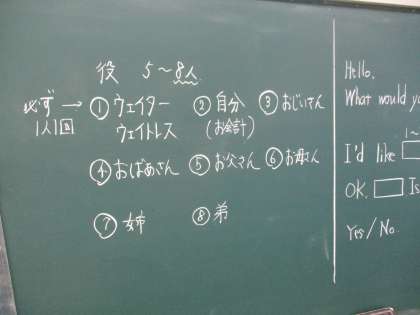 役 5～8人
必ず → ① ウェイター ② 自分 ③ おじいさん
1人1回 ウェイトレス (お会計)
④ おばあさん ⑤ お父さん ⑥ お母さん
⑦ 姉 ⑧ 弟
Hello.
What would yo
I'd like
OK. Is
Yes/No.